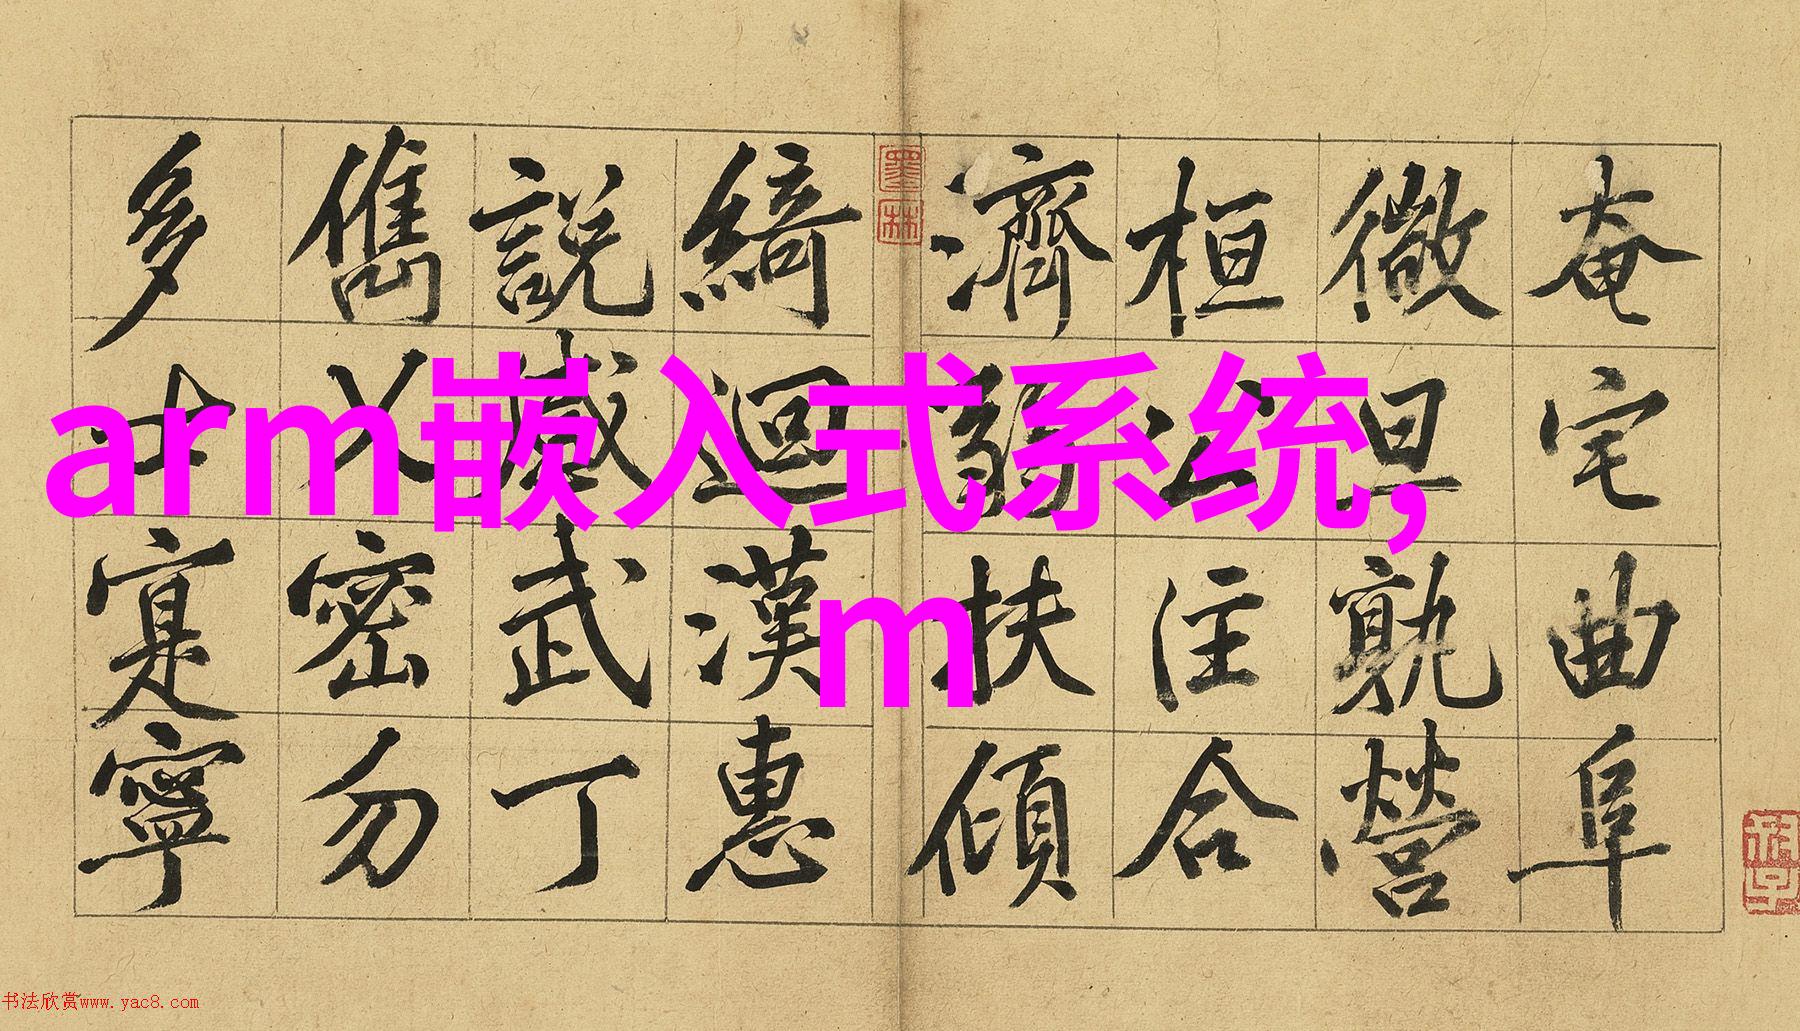 奄宅曲阜
微旦孰營
桓公合
濟弱扶傾
綺迴漢惠
說感武丁
儁乂密勿
多士寔寧
墨林
arm嵌入式系统,
m
书法欣赏www.yac8.com